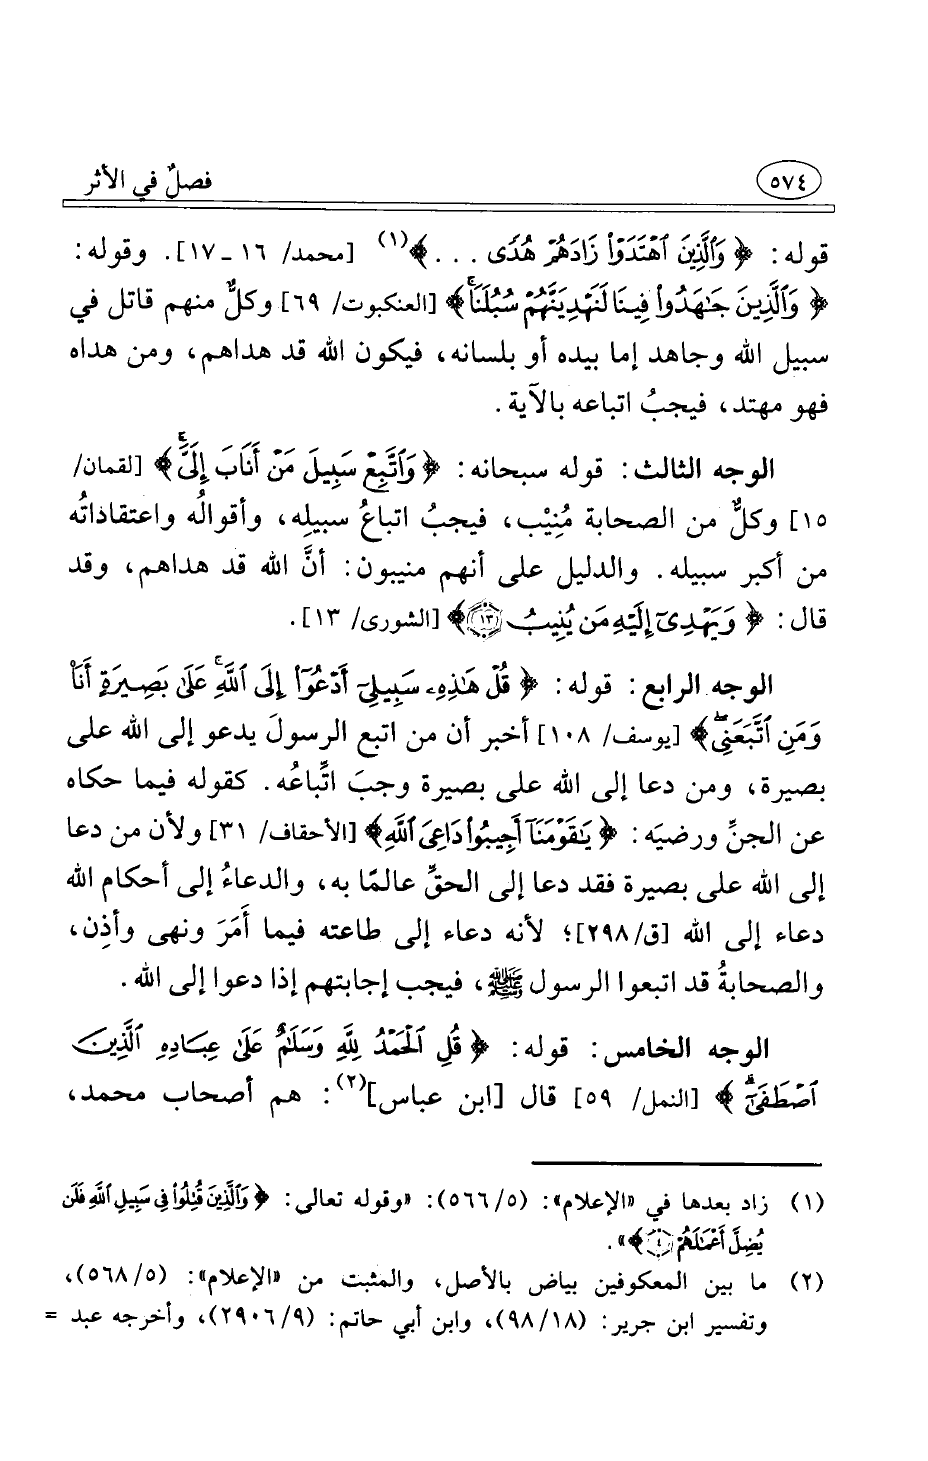 ٥٧٤ فصلٌ في الأثر
قوله: ﴿ وَٱلَّذِينَ ٱهْتَدَوْا۟ زَادَهُمْ هُدًى . . . ﴾(١) [محمد/ ١٦ ـ ١٧]. وقوله:
﴿ وَٱلَّذِينَ جَـٰهَدُوا۟ فِينَا لَنَهْدِيَنَّهُمْ سُبُلَنَا ۚ ﴾ [العنكبوت/ ٦٩] وكلٌّ منهم قاتل في
سبيل الله وجاهد إما بيده أو بلسانه، فيكون الله قد هداهم، ومن هداه
فهو مهتد، فيجبُ اتباعه بالآية.
الوجه الثالث: قوله سبحانه: ﴿ وَٱتَّبِعْ سَبِيلَ مَنْ أَنَابَ إِلَىَّ ۚ ﴾ [لقمان/
١٥] وكلٌّ من الصحابة مُنِيْب، فيجبُ اتباعُ سبيلِه، وأقوالُه واعتقاداتُه
من أكبر سبيله. والدليل على أنهم منيبون: أنَّ الله قد هداهم، وقد
قال: ﴿ وَيَهْدِىٓ إِلَيْهِ مَن يُنِيبُ ١٣ ﴾ [الشورى/ ١٣].
الوجه الرابع: قوله: ﴿ قُلْ هَـٰذِهِۦ سَبِيلِىٓ أَدْعُوٓا۟ إِلَى ٱللَّهِ ۚ عَلَىٰ بَصِيرَةٍ أَنَا۠
وَمَنِ ٱتَّبَعَنِى ۖ ﴾ [يوسف/ ١٠٨] أخبر أن من اتبع الرسولَ يدعو إلى الله على
بصيرة، ومن دعا إلى الله على بصيرة وجبَ اتِّباعُه. كقوله فيما حكاه
عن الجنِّ ورضيَه: ﴿ يَـٰقَوْمَنَآ أَجِيبُوا۟ دَاعِىَ ٱللَّهِ ﴾ [الأحقاف/ ٣١] ولأن من دعا
إلى الله على بصيرة فقد دعا إلى الحقِّ عالمًا به، والدعاءُ إلى أحكام الله
دعاء إلى الله [ق/٢٩٨]؛ لأنه دعاء إلى طاعته فيما أَمَرَ ونهى وأذِن،
والصحابةُ قد اتبعوا الرسول ﷺ، فيجب إجابتهم إذا دعوا إلى الله.
الوجه الخامس: قوله: ﴿ قُلِ ٱلْحَمْدُ لِلَّهِ وَسَلَـٰمٌ عَلَىٰ عِبَادِهِ ٱلَّذِينَ
ٱصْطَفَىٰٓ ۗ ﴾ [النمل/ ٥٩] قال [ابن عباس](٢): هم أصحاب محمد،
(١) زاد بعدها في «الإعلام»: (٥/ ٥٦٦): «وقوله تعالى: ﴿ وَٱلَّذِينَ قُتِلُوا۟ فِى سَبِيلِ ٱللَّهِ فَلَن
يُضِلَّ أَعْمَـٰلَهُمْ ٤ ﴾».
(٢) ما بين المعكوفين بياض بالأصل، والمثبت من «الإعلام»: (٥/ ٥٦٨)،
وتفسير ابن جرير: (١٨/ ٩٨)، وابن أبي حاتم: (٩/ ٢٩٠٦)، وأخرجه عبد =